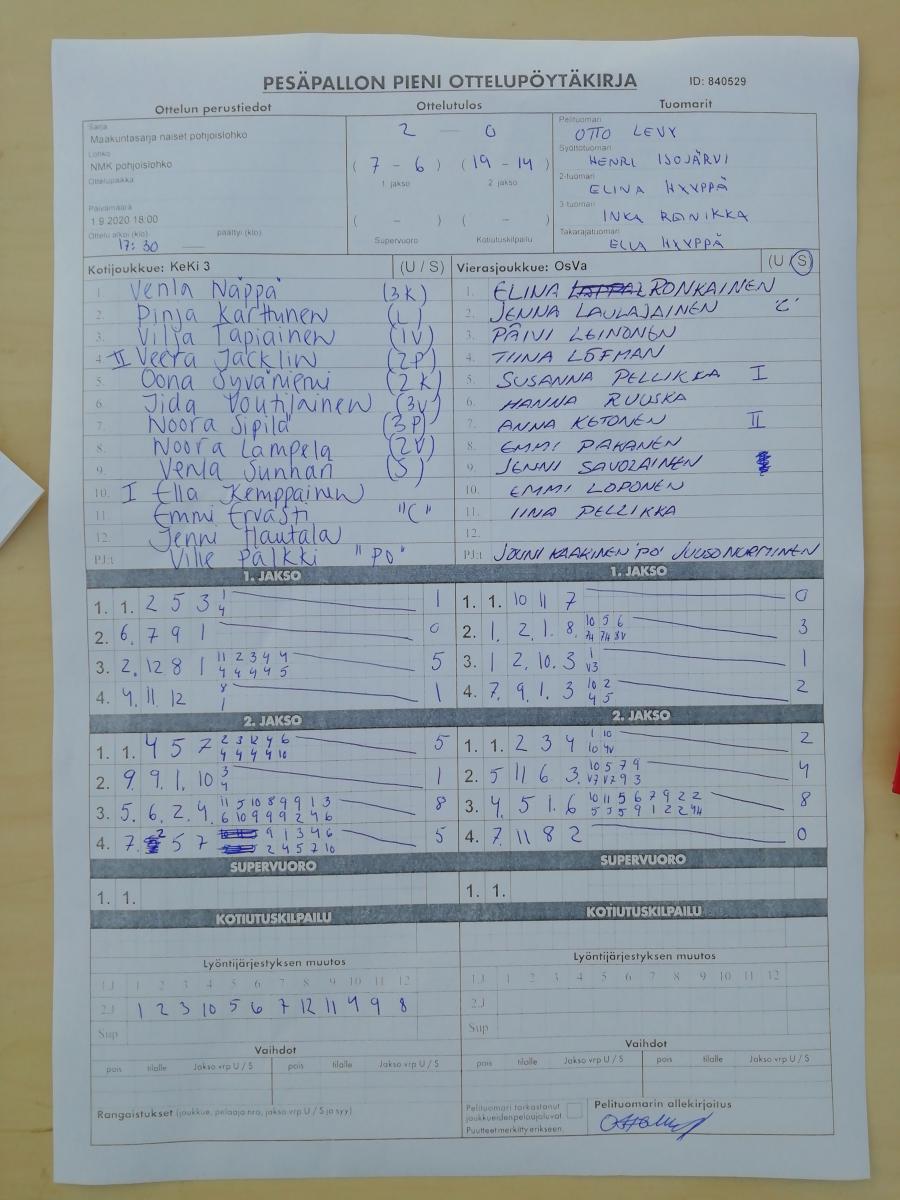 PESÄPALLON PIENI OTTELUPÖYTÄKIRJA ID: 840529
Ottelun perustiedot Ottelutulos Tuomarit
Sarja
Maakuntasarja naiset pohjoislohko
Lohko
NMK pohjoislohko
Ottelupaikka
Päivämäärä
1.9.2020 18:00
Ottelu alkoi (klo) päättyi (klo)
17:30
2 — 0
( 7 - 6 ) ( 19 - 14 )
1. jakso 2. jakso
( - ) ( - )
Supervuoro Kotiutuskilpailu
Pelituomari
OTTO LEVY
Syöttötuomari
HENRI ISOJÄRVI
2-tuomari
ELINA HYYPPÄ
3-tuomari
INKA REINIKKA
Takarajatuomari
ELLA HYYPPÄ
Kotijoukkue: KeKi 3 (U / S)
1. Venla Näppä (3K)
2. Pinja Karttunen (L)
3. Vilja Tapiainen (1V)
4. II Veera Jäcklin (2P)
5. Oona Syväniemi (2K)
6. Iida Voutilainen (3V)
7. Noora Sipilä (3P)
8. Noora Lampela (2V)
9. Venla Sunnari (S)
10. I Ella Kemppainen
11. Emmi Ervasti "C"
12. Jenni Hautala
PJ:t Ville Pälkki "PO"
Vierasjoukkue: OsVa (U / S)
1. ELINA RONKAINEN
2. JENNA LAULAJAINEN 'C'
3. PÄIVI LEINONEN
4. TIINA LÖFMAN
5. SUSANNA PELLIKKA I
6. HANNA RUUSKA
7. ANNA KETONEN II
8. EMMI PAKANEN
9. JENNI SAVOLAINEN
10. EMMI LOPONEN
11. IINA PELLIKKA
12.
PJ:t JOUNI KAAKINEN 'PO' JUUSO NURMINEN
1. JAKSO
1. 1. 2 5 3 1 1
4
2. 6. 7 9 1 0
3. 2. 12 8 1 11 2 3 4 4 5
4 4 4 4 5
4. 4. 11 12 8 1
1
2. JAKSO
1. 1. 4 5 7 2 3 12 4 6 5
4 4 4 4 10
2. 9. 9 1. 10 3 1
4
3. 5. 6. 2. 4. 11 5 10 8 9 9 1 3 8
6 10 9 9 9 2 4 6
4. 7. 2 5 7 9 1 3 4 6 5
2 4 5 7 10
SUPERVUORO
1. 1.
KOTIUTUSKILPAILU
1. JAKSO
1. 1. 10 11 7 0
2. 1. 2. 1. 8. 10 5 6 3
3. 1 2. 10. 3 1 1
V3
4. 7. 9. 1. 3 10 2 2
4 5
2. JAKSO
1. 1. 2 3 4 1 10 2
10 4V
2. 5 11 6 3. 10 5 7 9 4
V7 V7 9 3
3. 4. 5 1. 6 10 11 5 6 7 9 2 2 8
4. 7. 11 8 2 0
SUPERVUORO
1. 1.
KOTIUTUSKILPAILU
Lyöntijärjestyksen muutos
1.J 1 2 3 4 5 6 7 8 9 10 11 12
2.J 1 2 3 10 5 6 7 12 11 4 9 8
Sup
Vaihdot
pois tilalle Jakso vrp U / S pois tilalle Jakso vrp U / S
Rangaistukset (joukkue, pelaaja nro, jakso vrp U / S ja syy)
Lyöntijärjestyksen muutos
1.J 1 2 3 4 5 6 7 8 9 10 11 12
2.J
Sup
Vaihdot
pois tilalle Jakso vrp U / S pois tilalle Jakso vrp U / S
Pelituomari tarkastanut
joukkueiden peluuluvat
Puutteet merkitty erikseen.
Pelituomarin allekirjoitus